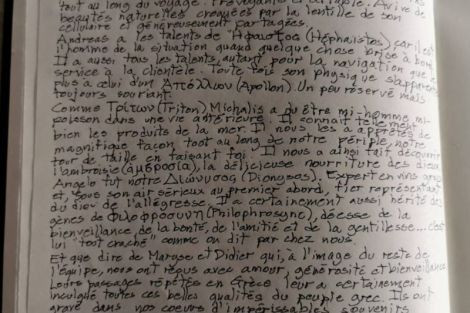 tout au long du voyage. Prévenante et
beautés naturelles croquées par la lentille de son
cellulaire et généreusement partagées.
Andreas a les talents de Ήφαιστος (Héphaïstos) car il est
l'homme de la situation quand quelque chose brise à bord.
Il a aussi tous les talents, autant pour la navigation que le
service à la clientèle. Toutefois son physique s'apparente
plus à celui d'un Απόλλων (Apollon). Un peu réservé mais
toujours souriant.
Comme Τρίτων (Triton) Michalis a dû être mi-homme, mi-
poisson dans une vie antérieure. Il connaît tellement
bien les produits de la mer. Il nous les a apprêtés de
magnifique façon, tout au long de notre périple, notre
tour de taille en faisant foi. Il nous a ainsi fait découvrir
l'ambroisie (αμβροσία), la délicieuse nourriture des dieux.
Angelo fut notre Διώνυσος (Dionysos). Expert en vins grecs
et, sous son air sérieux au premier abord, fier représentant
du dieu de l'allégresse. Il a certainement aussi hérité des
gènes de Φιλοφροσύνη (Philophrosyne), déesse de la
bienveillance, de la bonté, de l'amitié et de la gentillesse... c'est
lui "tout craché" comme on dit par chez nous.
Et que dire de Maryse et Didier qui, à l'image du reste de
l'équipe, nous ont reçus avec amour, générosité et bienveillance.
Leurs passages répétés en Grèce leur a certainement
inculqué toutes ces belles qualités du peuple grec. Ils ont
gravé dans nos coeurs d'impérissables souvenirs